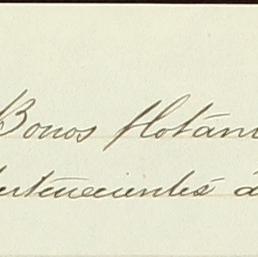 Bonos flotan
ertenecientes á